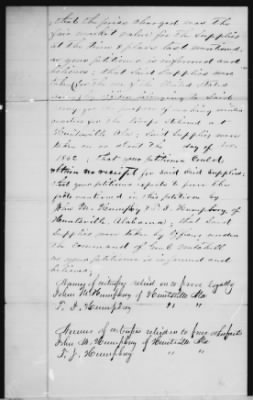 that the price charged was the
fair market value for the supplies
at the time & place last mentioned,
as your petitioner is informed and
believes; that said supplies were
taken for the use of the United States
army for purpose of making
for the troops stationed at
Huntsville Ala; said supplies were
taken on or about the day of
1862; that your petitioner could
obtain no receipt for said supplies;
that your petitioner expects to prove the
facts mentioned in this petition by
Jno M. Humphrey & T. J. Humphrey of
Huntsville, Alabama; that said
supplies were taken by troops under
the command of Genl Mitchell
as your petitioner is informed and
believes.
Names of witnesses relied on to prove loyalty
John M. Humphrey of Huntsville Ala
T. J. Humphrey " "
Names of witnesses relied on to prove the facts
John M. Humphrey of Huntsville Ala
T. J. Humphrey " "